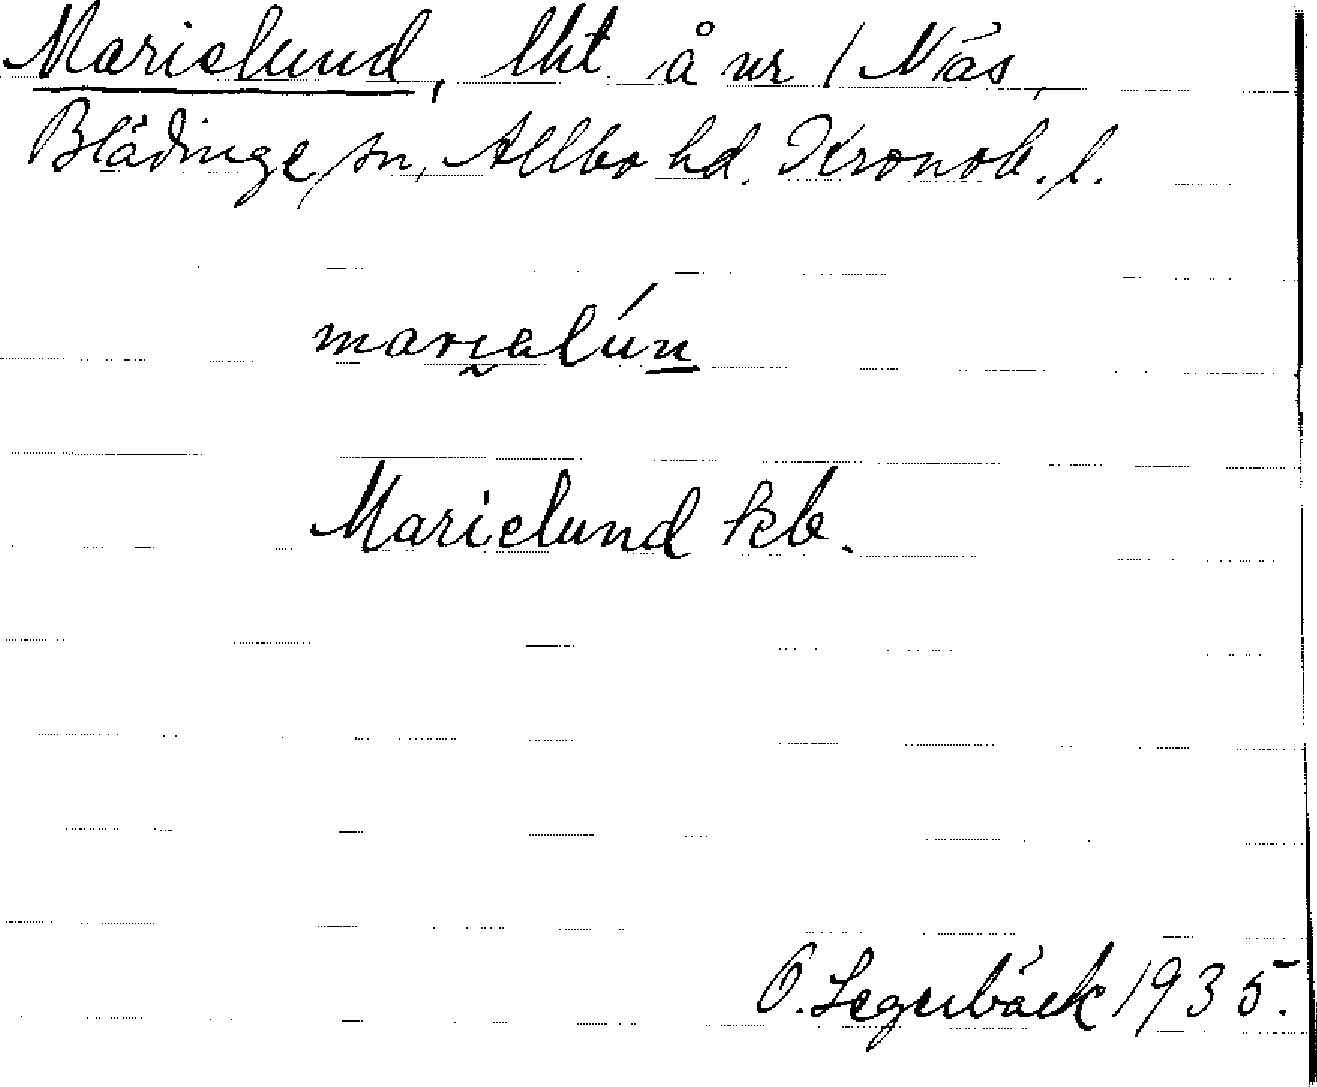 Marielund, lht å nr 1 Näs,
Blädinge sn, Allbo hd. Kronob. l.
mari̯əlún̲
Marielund kb.
O. Segerbäck 1935.